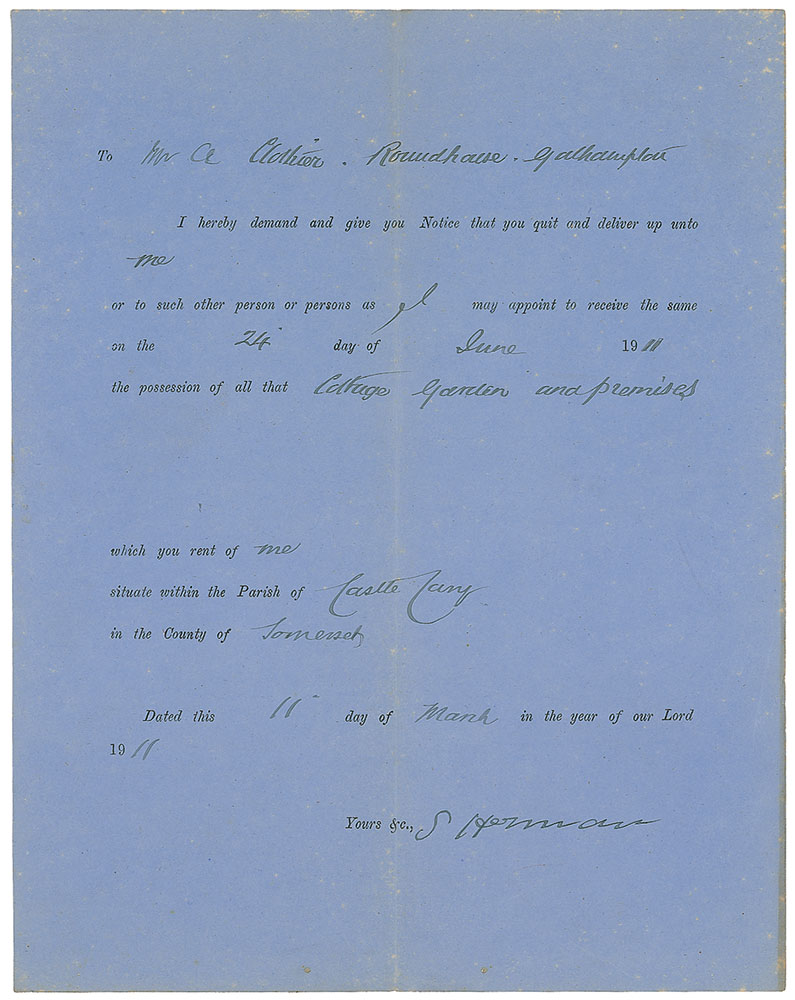 To Mr A Clothier . Roundhouse . Galhampton
I hereby demand and give you Notice that you quit and deliver up unto
me
or to such other person or persons as I may appoint to receive the same
on the 24 day of June 1911
the possession of all that Cottage Garden and premises
which you rent of me
situate within the Parish of Castle Cary
in the County of Somerset
Dated this 11 day of March in the year of our Lord
1911
Yours &c., S Herman